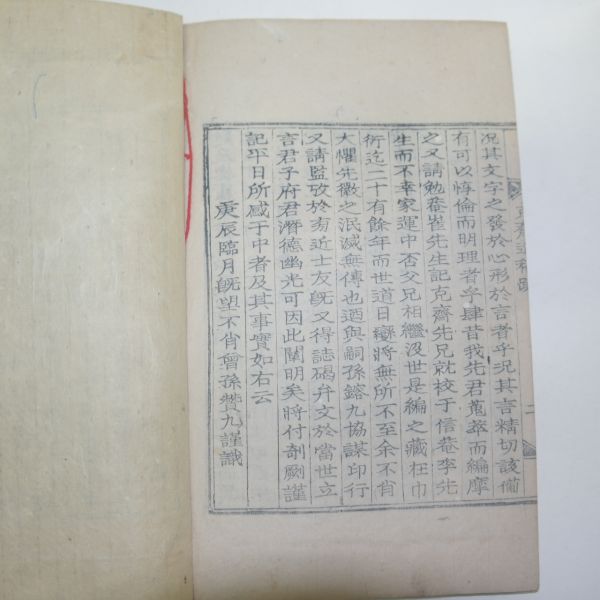 況其文字之發於心形於言者乎況其言精切該備
有可以惇倫而明理者乎肆昔我先君蒐葺而編摩
之又請勉菴崔先生記克齋先兄就校于信菴李先
生而不幸家運中否父兄相繼沒世是編之藏在巾
衍迄二十有餘年而世道日將無所不至余不肖
大懼先徽之泯滅無傳也迺與嗣孫鎔九協謀印行
又請監攷於有近士友旣又得誌碣弁文於當世立
言君子府君潛德幽光可因此闡明矣將付剞劂謹
記平日所感于中者及其事實如右云
庚辰臨月旣望不肖曾孫贊九謹識
二